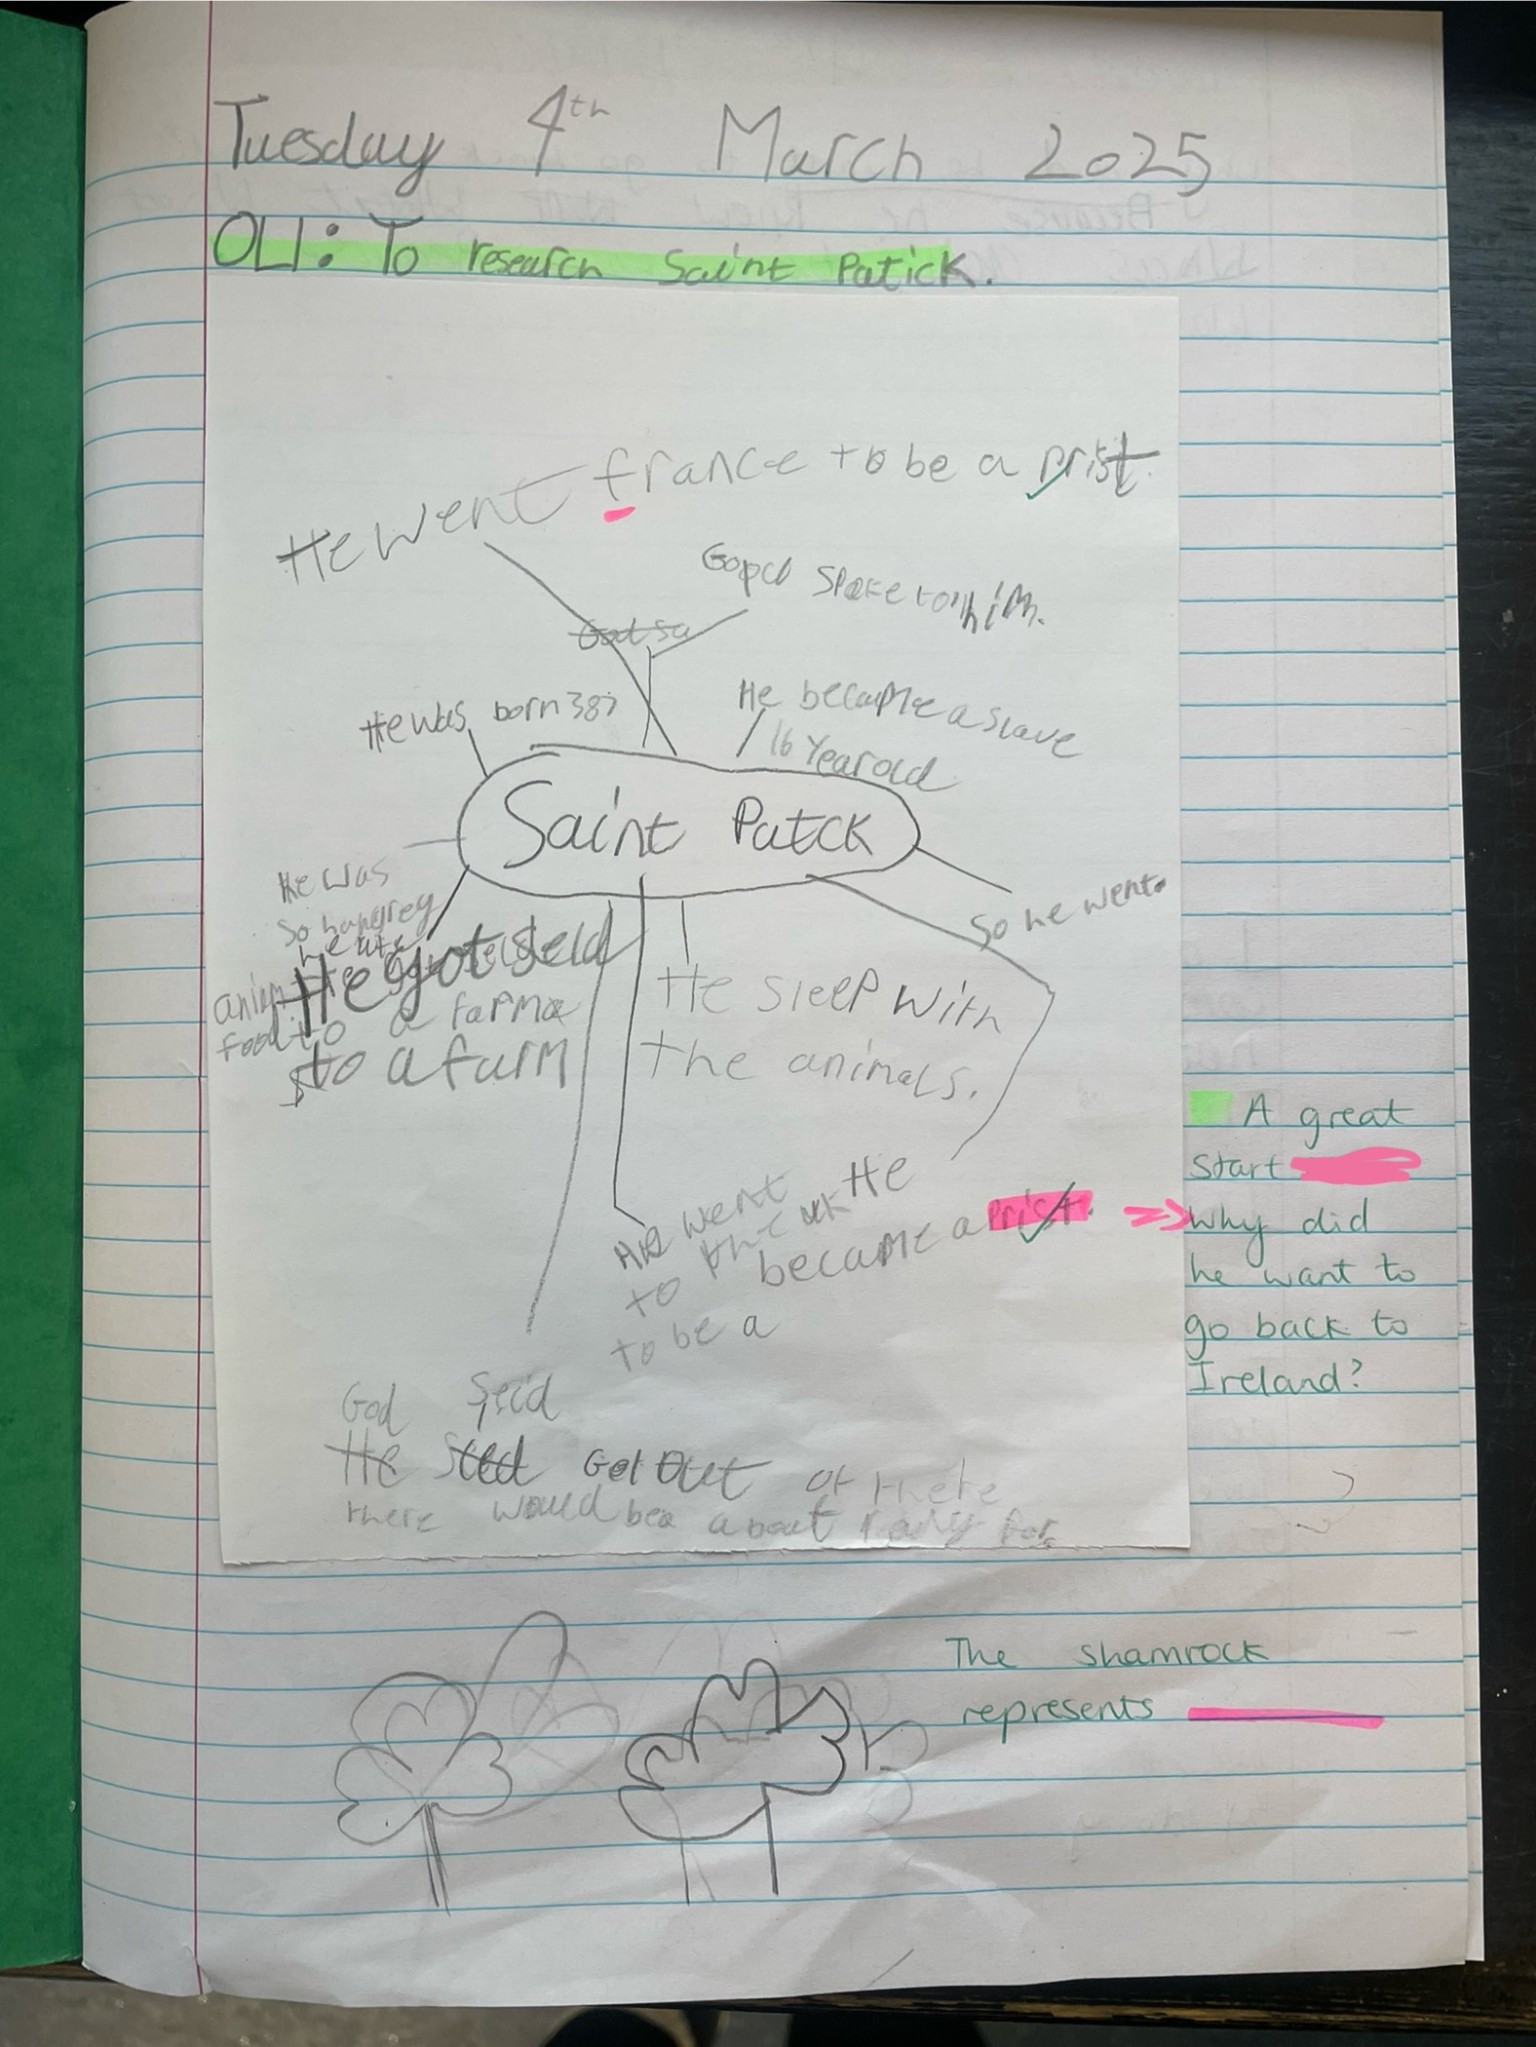 Tuesday 4th March 2025
OLI: To research Saint Patick.
He went france to be a prist.
spake to him.
God sa
He was born 387
He became a slave
16 Year old
Saint Patck
He was
so hungrey
he ate
food to a farma
He got seld
to a farm
So he went
He sleep with
the animals.
went
to the He
became a prist.
to be a
God Seid
He Get out of there
there would be a about redy for
A great
start
Why did
he want to
go back to
Ireland?
The shamrock
represents